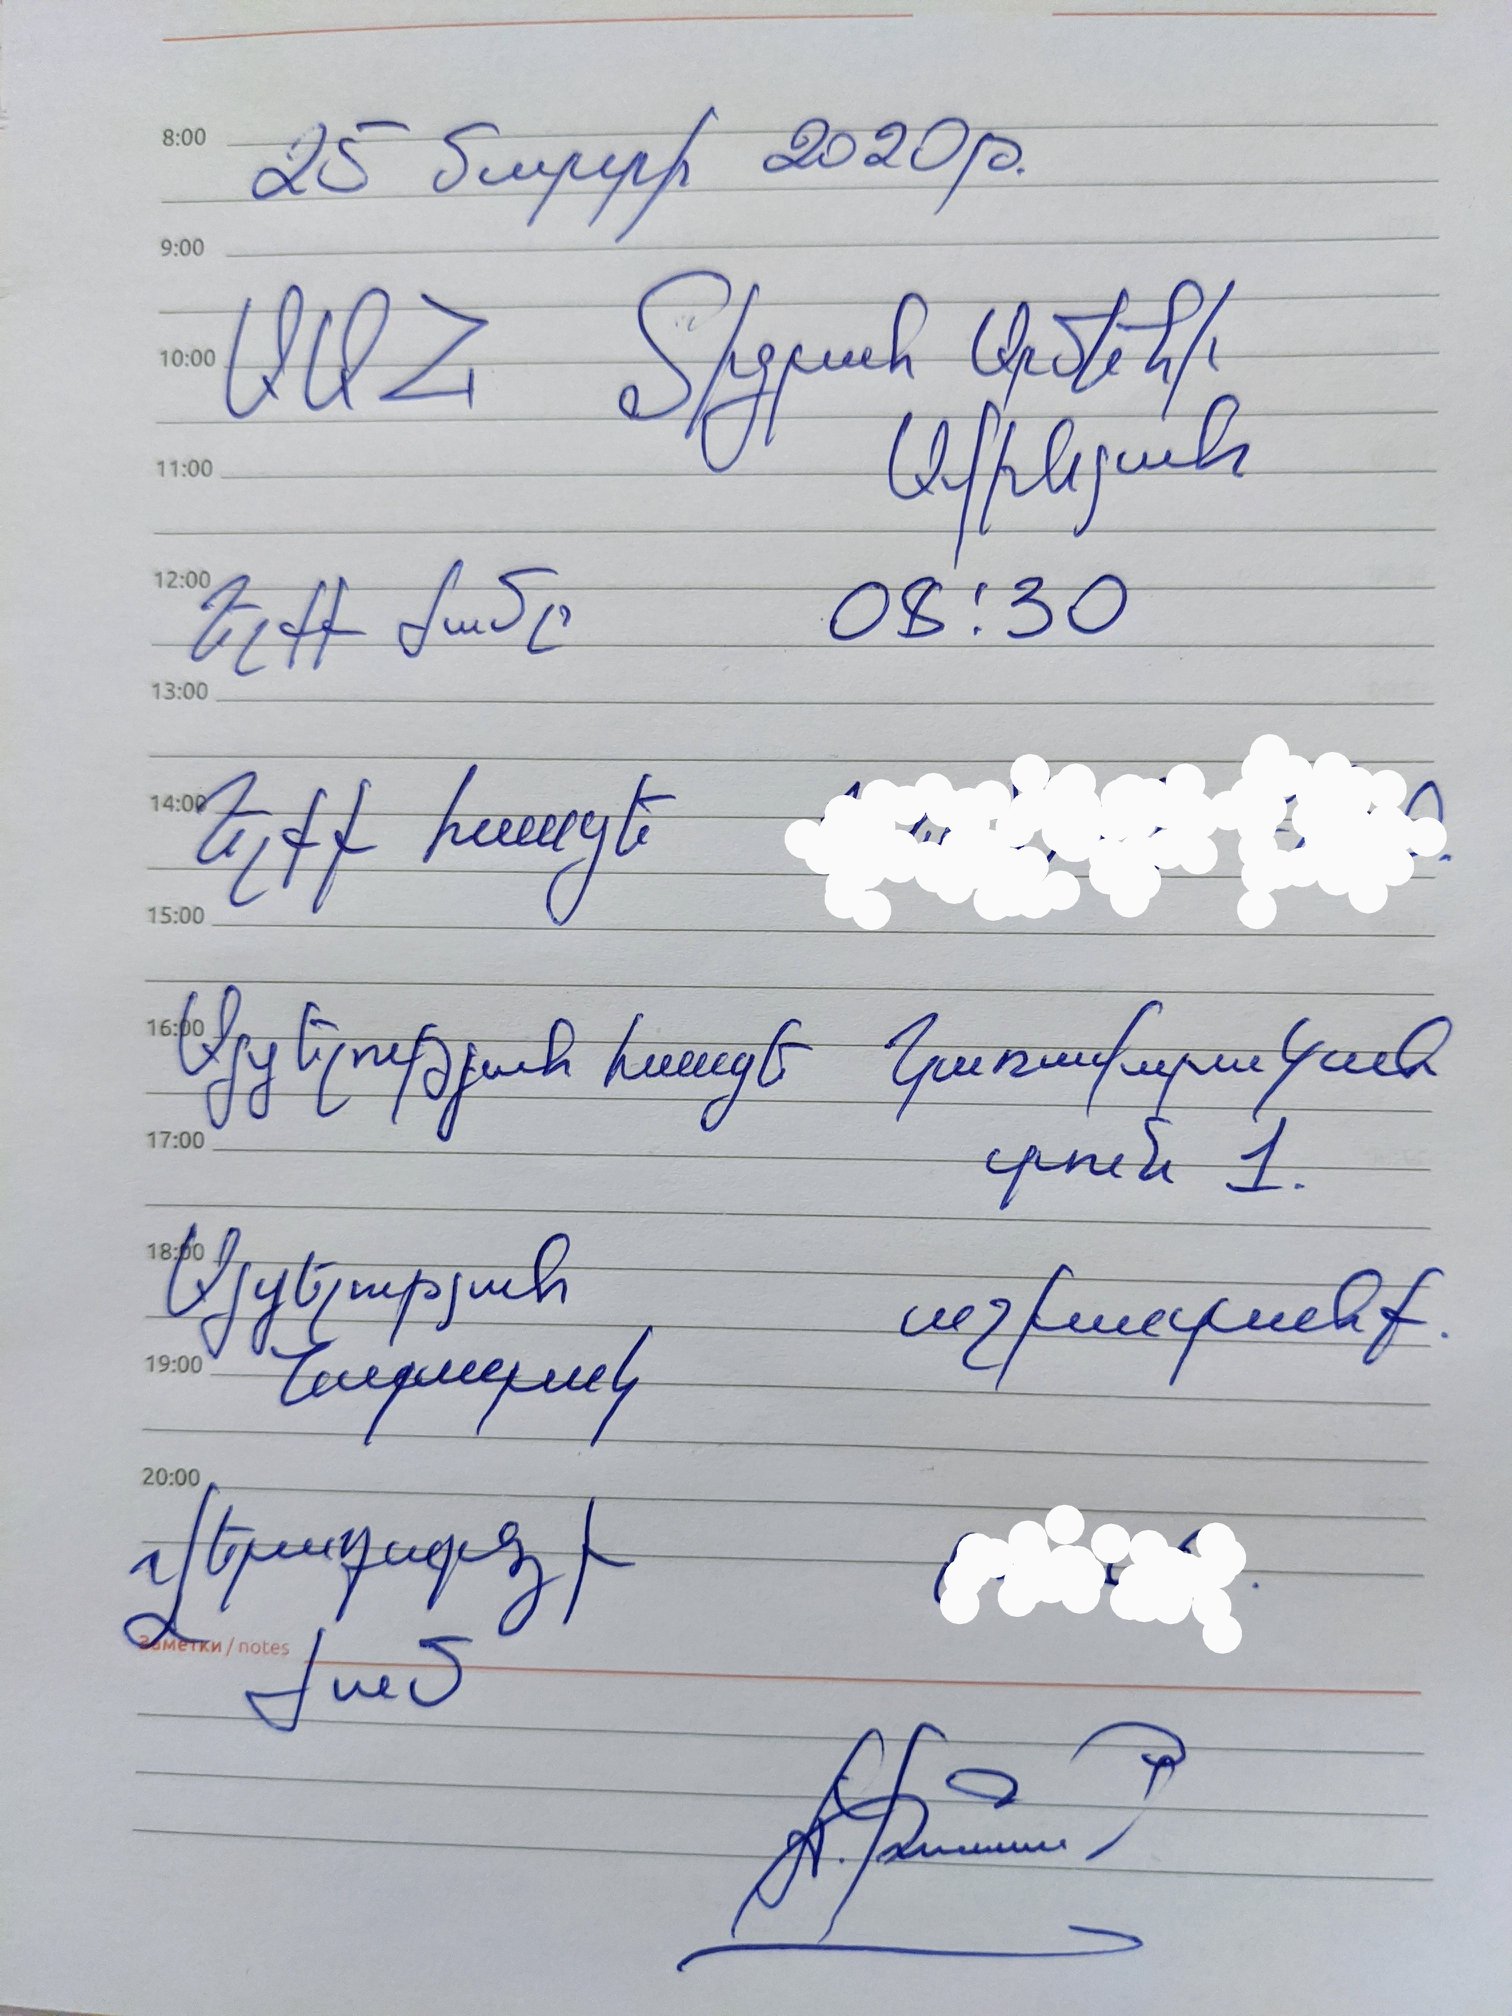 8:00
25 մարտի 2020թ.
9:00
ԱԱՀ Տիգրան Արմենի
10:00
Ավինյան
11:00
12:00
Ելքի ժամը 08:30
13:00
14:00
Ելքի հասցե
15:00
16:00
Այցելության հասցե Կառավարական
17:00
տուն 1.
18:00
Այցելության աշխատանք.
19:00
Նպատակ
20:00
Վերադարձի
Заметки / notes
ժամ